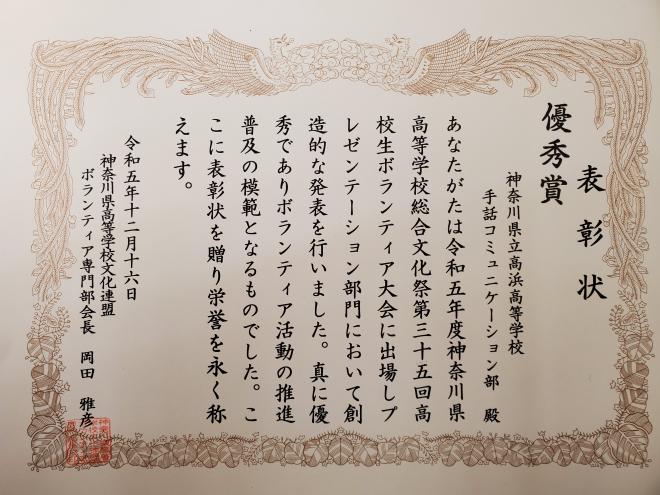 表彰状
優秀賞
神奈川県立高浜高等学校
手話コミュニケーション部 殿
あなたがたは令和五年度神奈川県
高等学校総合文化祭第三十五回高
校生ボランティア大会に出場しプ
レゼンテーション部門において創
造的な発表を行いました。真に優
秀でありボランティア活動の推進
普及の模範となるものでした。こ
こに表彰状を贈り栄誉を永く称
えます。
令和五年十二月十六日
神奈川県高等学校文化連盟
ボランティア専門部会長 岡田 雅彦